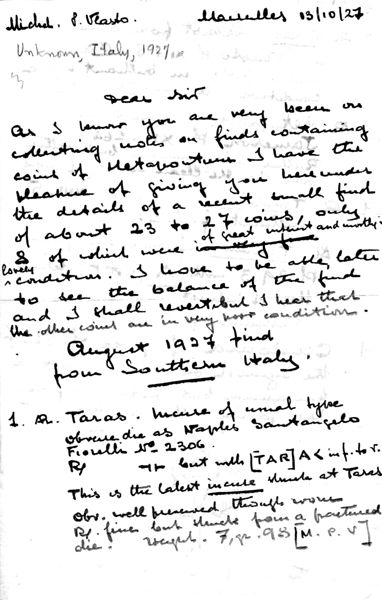 Michel. P. Vlasto. Marseilles 13/10/27
Unknown, Italy, 1927
Dear Sir
As I know you are very keen on
collecting notes on finds containing
coins of Metapontum I have the
pleasure of giving you hereunder
the details of a recent small find
of about 23 to 27 coins, only
8 of which were of great interest and mostly
lovely condition. I hope to be able later
to see the balance of the find
and I shall revert but I hear that
the other coins are in very poor condition.
August 1927 find
from Southern Italy.
1. AR. Taras. Incuse of usual type
obverse die as Naples Santangelo
Fiorelli No 2306.
R/ but with [TAR]A< inf. to r.
This is the latest incuse struck at Taras
obv. well preserved though worn
R/. finer but struck from a fractured
die. Weight. 7,gr. 93 [M. P. V]